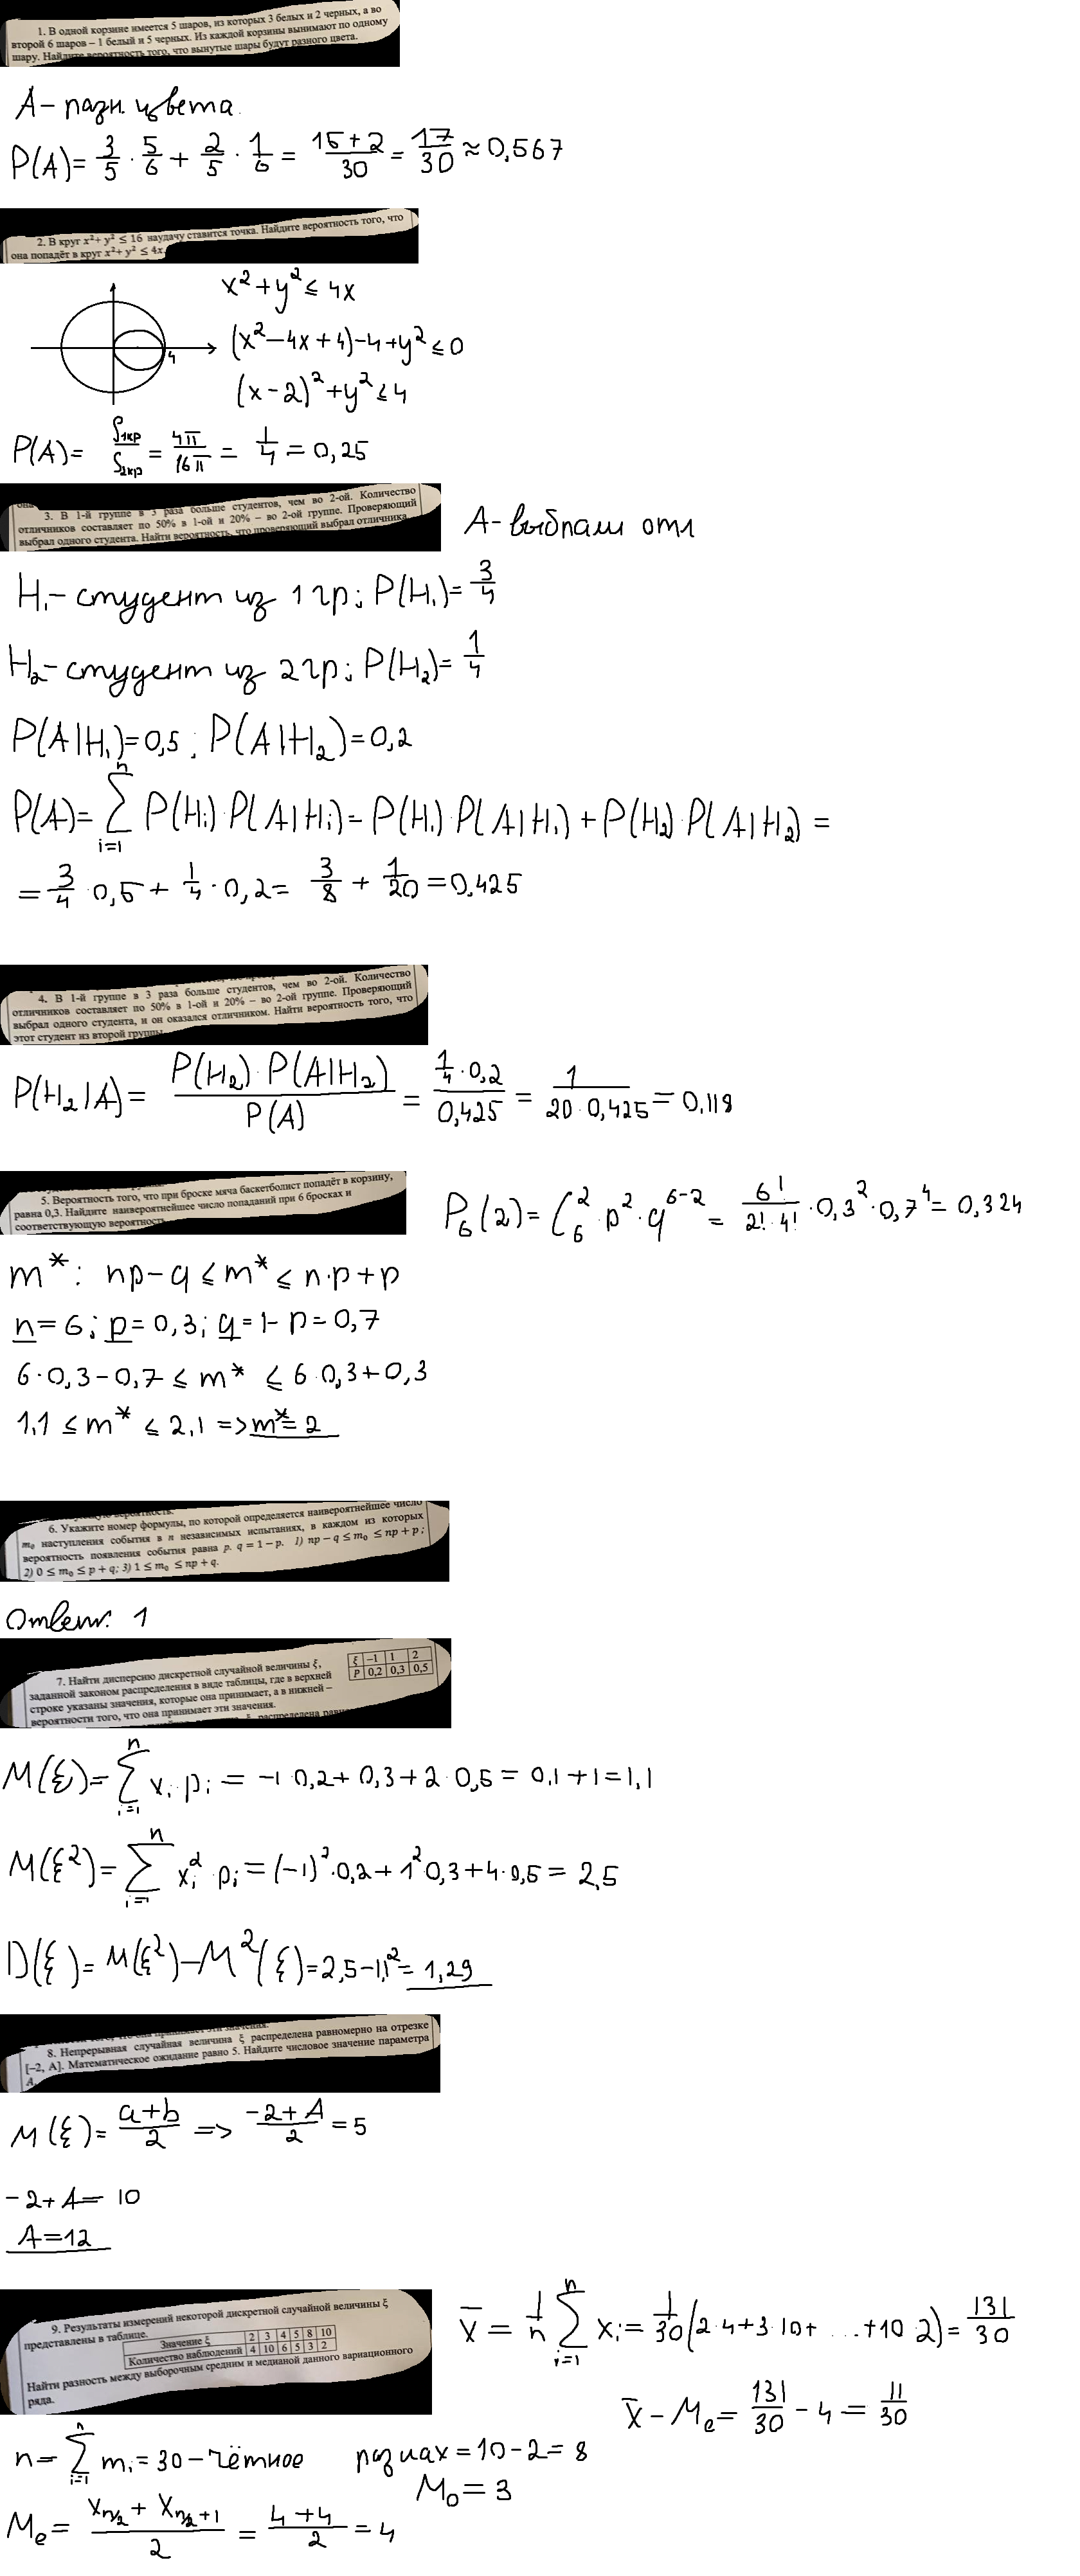 1. В одной корзине имеется 5 шаров, из которых 3 белых и 2 черных, а во
второй 6 шаров – 1 белый и 5 черных. Из каждой корзины вынимают по одному
шару. Найдите вероятность того, что вынутые шары будут разного цвета.
A – разн. цвета.
P(A)= 3/5 · 5/6 + 2/5 · 1/6 = (15+2)/30 = 17/30 ≈ 0,567
2. В круг x²+ y² ≤ 16 наудачу ставится точка. Найдите вероятность того, что
она попадёт в круг x²+ y² ≤ 4x.
x²+y² ≤ 4x
(x²−4x+4)−4+y² ≤ 0
4
(x−2)²+y² ≤ 4
P(A)= S₁кр/S₂кр = 4π/16π = 1/4 = 0,25
3. В 1-й группе в 3 раза больше студентов, чем во 2-ой. Количество
отличников составляет по 50% в 1-ой и 20% – во 2-ой группе. Проверяющий
выбрал одного студента. Найти вероятность, что проверяющий выбрал отличника.
A – выбрали отл
H₁ – студент из 1 гр; P(H₁)= 3/4
H₂ – студент из 2 гр; P(H₂)= 1/4
P(A|H₁)=0,5 ; P(A|H₂)=0,2
P(A)= ∑ⁿᵢ₌₁ P(Hᵢ)·P(A|Hᵢ)= P(H₁)·P(A|H₁)+P(H₂)·P(A|H₂) =
= 3/4 · 0,5 + 1/4 · 0,2 = 3/8 + 1/20 = 0,425
4. В 1-й группе в 3 раза больше студентов, чем во 2-ой. Количество
отличников составляет по 50% в 1-ой и 20% – во 2-ой группе. Проверяющий
выбрал одного студента, и он оказался отличником. Найти вероятность того, что
этот студент из второй группы
P(H₂|A)= P(H₂)·P(A|H₂)/P(A) = (1/4 · 0,2)/0,425 = 1/(20·0,425) = 0,118
5. Вероятность того, что при броске мяча баскетболист попадёт в корзину,
равна 0,3. Найдите наивероятнейшее число попаданий при 6 бросках и
соответствующую вероятность
P₆(2)= C₆² · p² · q⁶⁻² = 6!/(2!·4!) · 0,3² · 0,7⁴ = 0,324
m*: np−q ≤ m* ≤ n·p+p
n=6; p=0,3; q=1−p=0,7
6·0,3−0,7 ≤ m* ≤ 6·0,3+0,3
1,1 ≤ m* ≤ 2,1 => m*=2
6. Укажите номер формулы, по которой определяется наивероятнейшее число
m₀ наступления события в n независимых испытаниях, в каждом из которых
вероятность появления события равна p. q = 1 − p. 1) np − q ≤ m₀ ≤ np + p ;
2) 0 ≤ m₀ ≤ p + q; 3) 1 ≤ m₀ ≤ np + q.
Ответ: 1
7. Найти дисперсию дискретной случайной величины ξ,
заданной законом распределения в виде таблицы, где в верхней
строке указаны значения, которые она принимает, а в нижней –
вероятности того, что она принимает эти значения.
ξ −1 1 2
P 0,2 0,3 0,5
M(ξ)= ∑ⁿᵢ₌₁ xᵢ·pᵢ = −1·0,2+0,3+2·0,5=0,1+1=1,1
M(ξ²)= ∑ⁿᵢ₌₁ xᵢ²·pᵢ = (−1)²·0,2+1²·0,3+4·0,5= 2,5
D(ξ)= M(ξ²)−M²(ξ)=2,5−1,1²=1,29
8. Непрерывная случайная величина ξ распределена равномерно на отрезке
[−2, A]. Математическое ожидание равно 5. Найдите числовое значение параметра
A.
M(ξ)= (a+b)/2 => (−2+A)/2 = 5
−2+A= 10
A=12
9. Результаты измерений некоторой дискретной случайной величины ξ
представлены в таблице.
Значение ξ 2 3 4 5 8 10
Количество наблюдений 4 10 6 5 3 2
Найти разность между выборочным средним и медианой данного вариационного
ряда.
x̄ = 1/n ∑ⁿᵢ₌₁ xᵢ = 1/30 (2·4+3·10+ ...+10·2)= 131/30
x̄ − Me = 131/30 − 4 = 11/30
n= ∑ⁿᵢ₌₁ mᵢ = 30 – чётное размах=10−2=8
M₀=3
Me= (x_{n/2} + x_{n/2+1})/2 = (4+4)/2 = 4